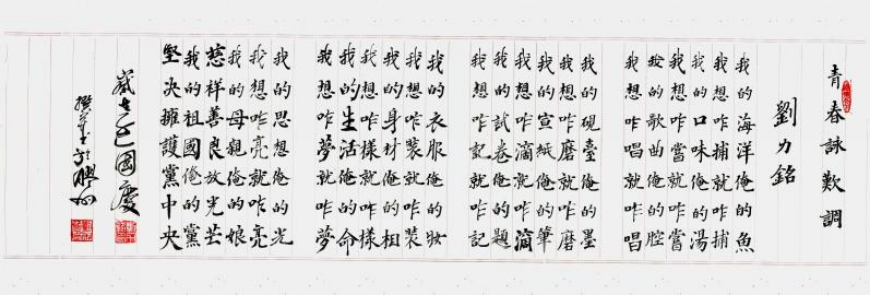 青春詠歎調
劉力銘
我的海洋俺的魚
我想咋捕就咋捕
我的口味俺的湯
我想咋嘗就咋嘗
我的歌曲俺的腔
我想咋唱就咋唱
我的硯臺俺的墨
我想咋磨就咋磨
我的宣紙俺的筆
我想咋滴就咋滴
我的試卷俺的題
我想咋記就咋記
我的衣服俺的妝
我想咋裝就咋裝
我的身材俺的相
我想咋樣就咋樣
我的生活俺的命
我想咋夢就咋夢
我的思想俺的光
我想咋亮就咋亮
我的母親俺的娘
慈祥善良放光芒
我的祖國俺的黨
堅決擁護黨中央
歲乙巳國慶
於膠州